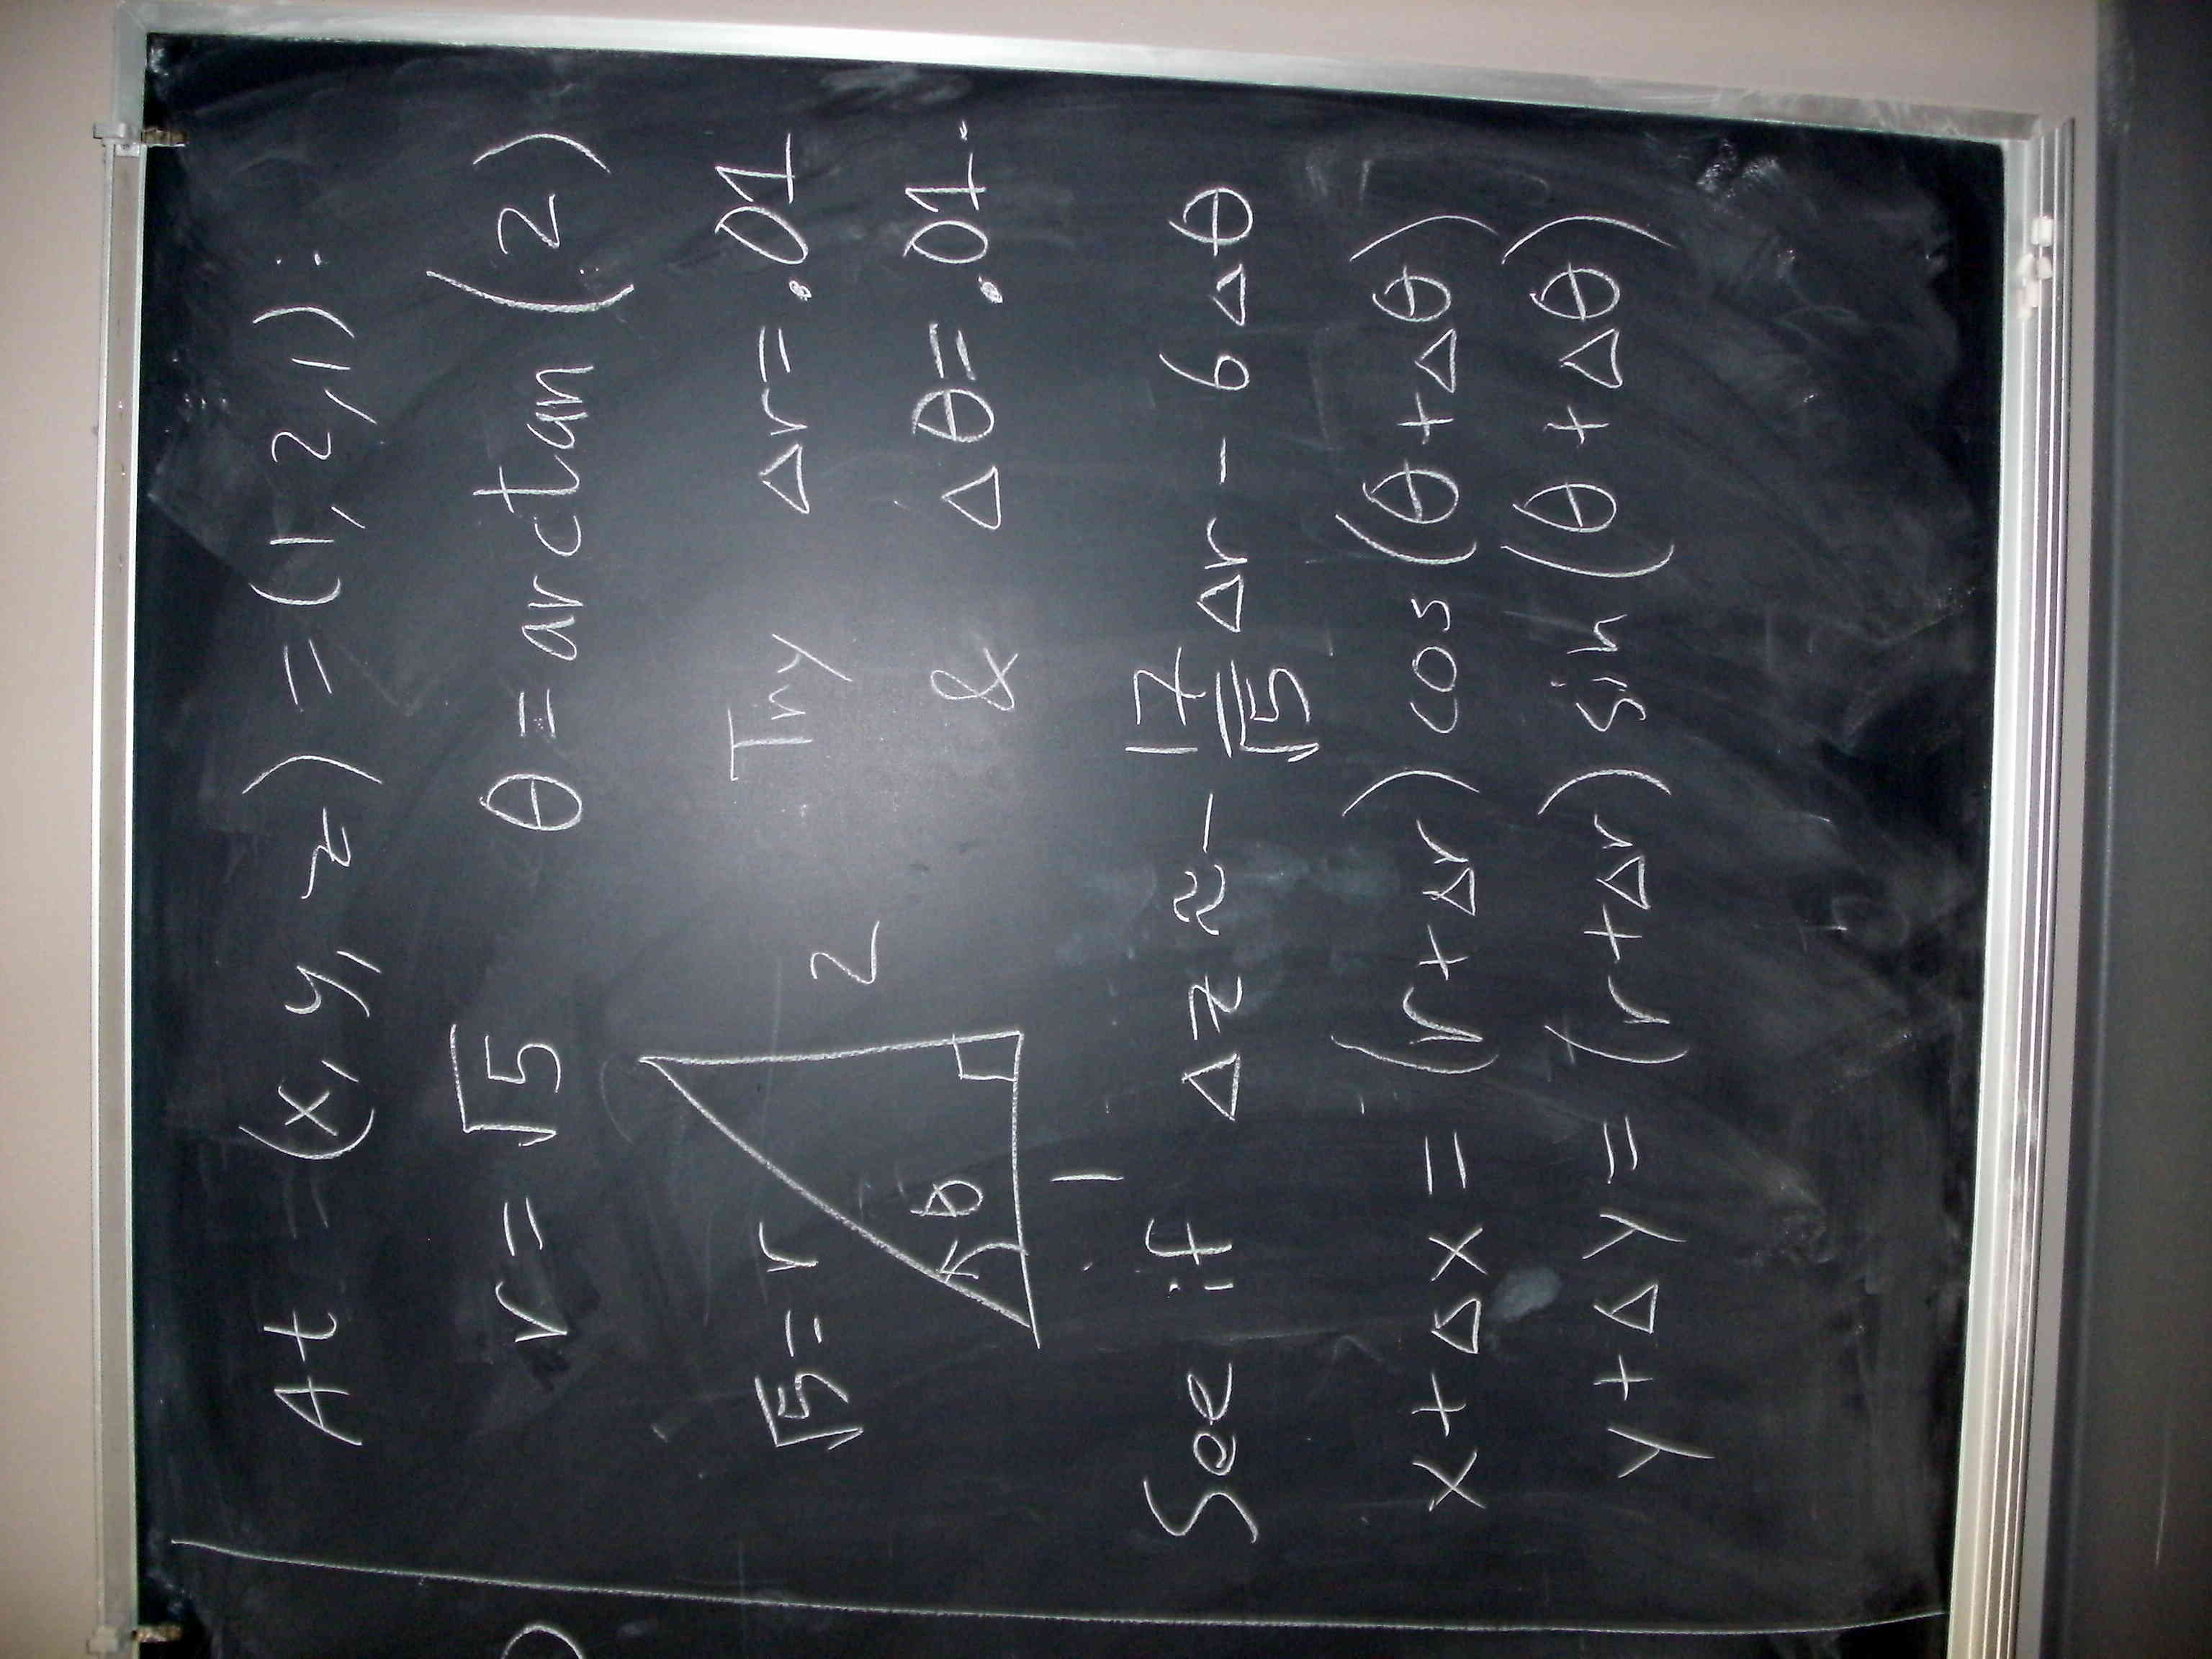 At (x, y, z) = (1, 2, 1):
r = √5 θ = arctan (2)
√5 = r θ 1 2
Try Δr = .01
& Δθ = .01.
See if Δz ≈ - 17/√5 Δr - 6 Δθ
x + Δx = (r + Δr) cos (θ + Δθ)
y + Δy = (r + Δr) sin (θ + Δθ)